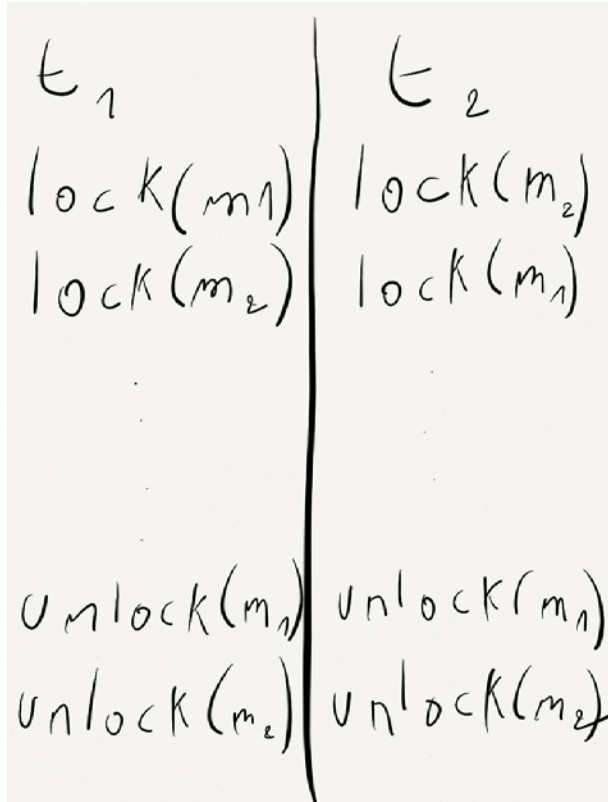 t₁
lock(m1)
lock(m₂)
unlock(m₁)
unlock(m₂)
t₂
lock(m₂)
lock(m₁)
unlock(m₁)
unlock(m₂)